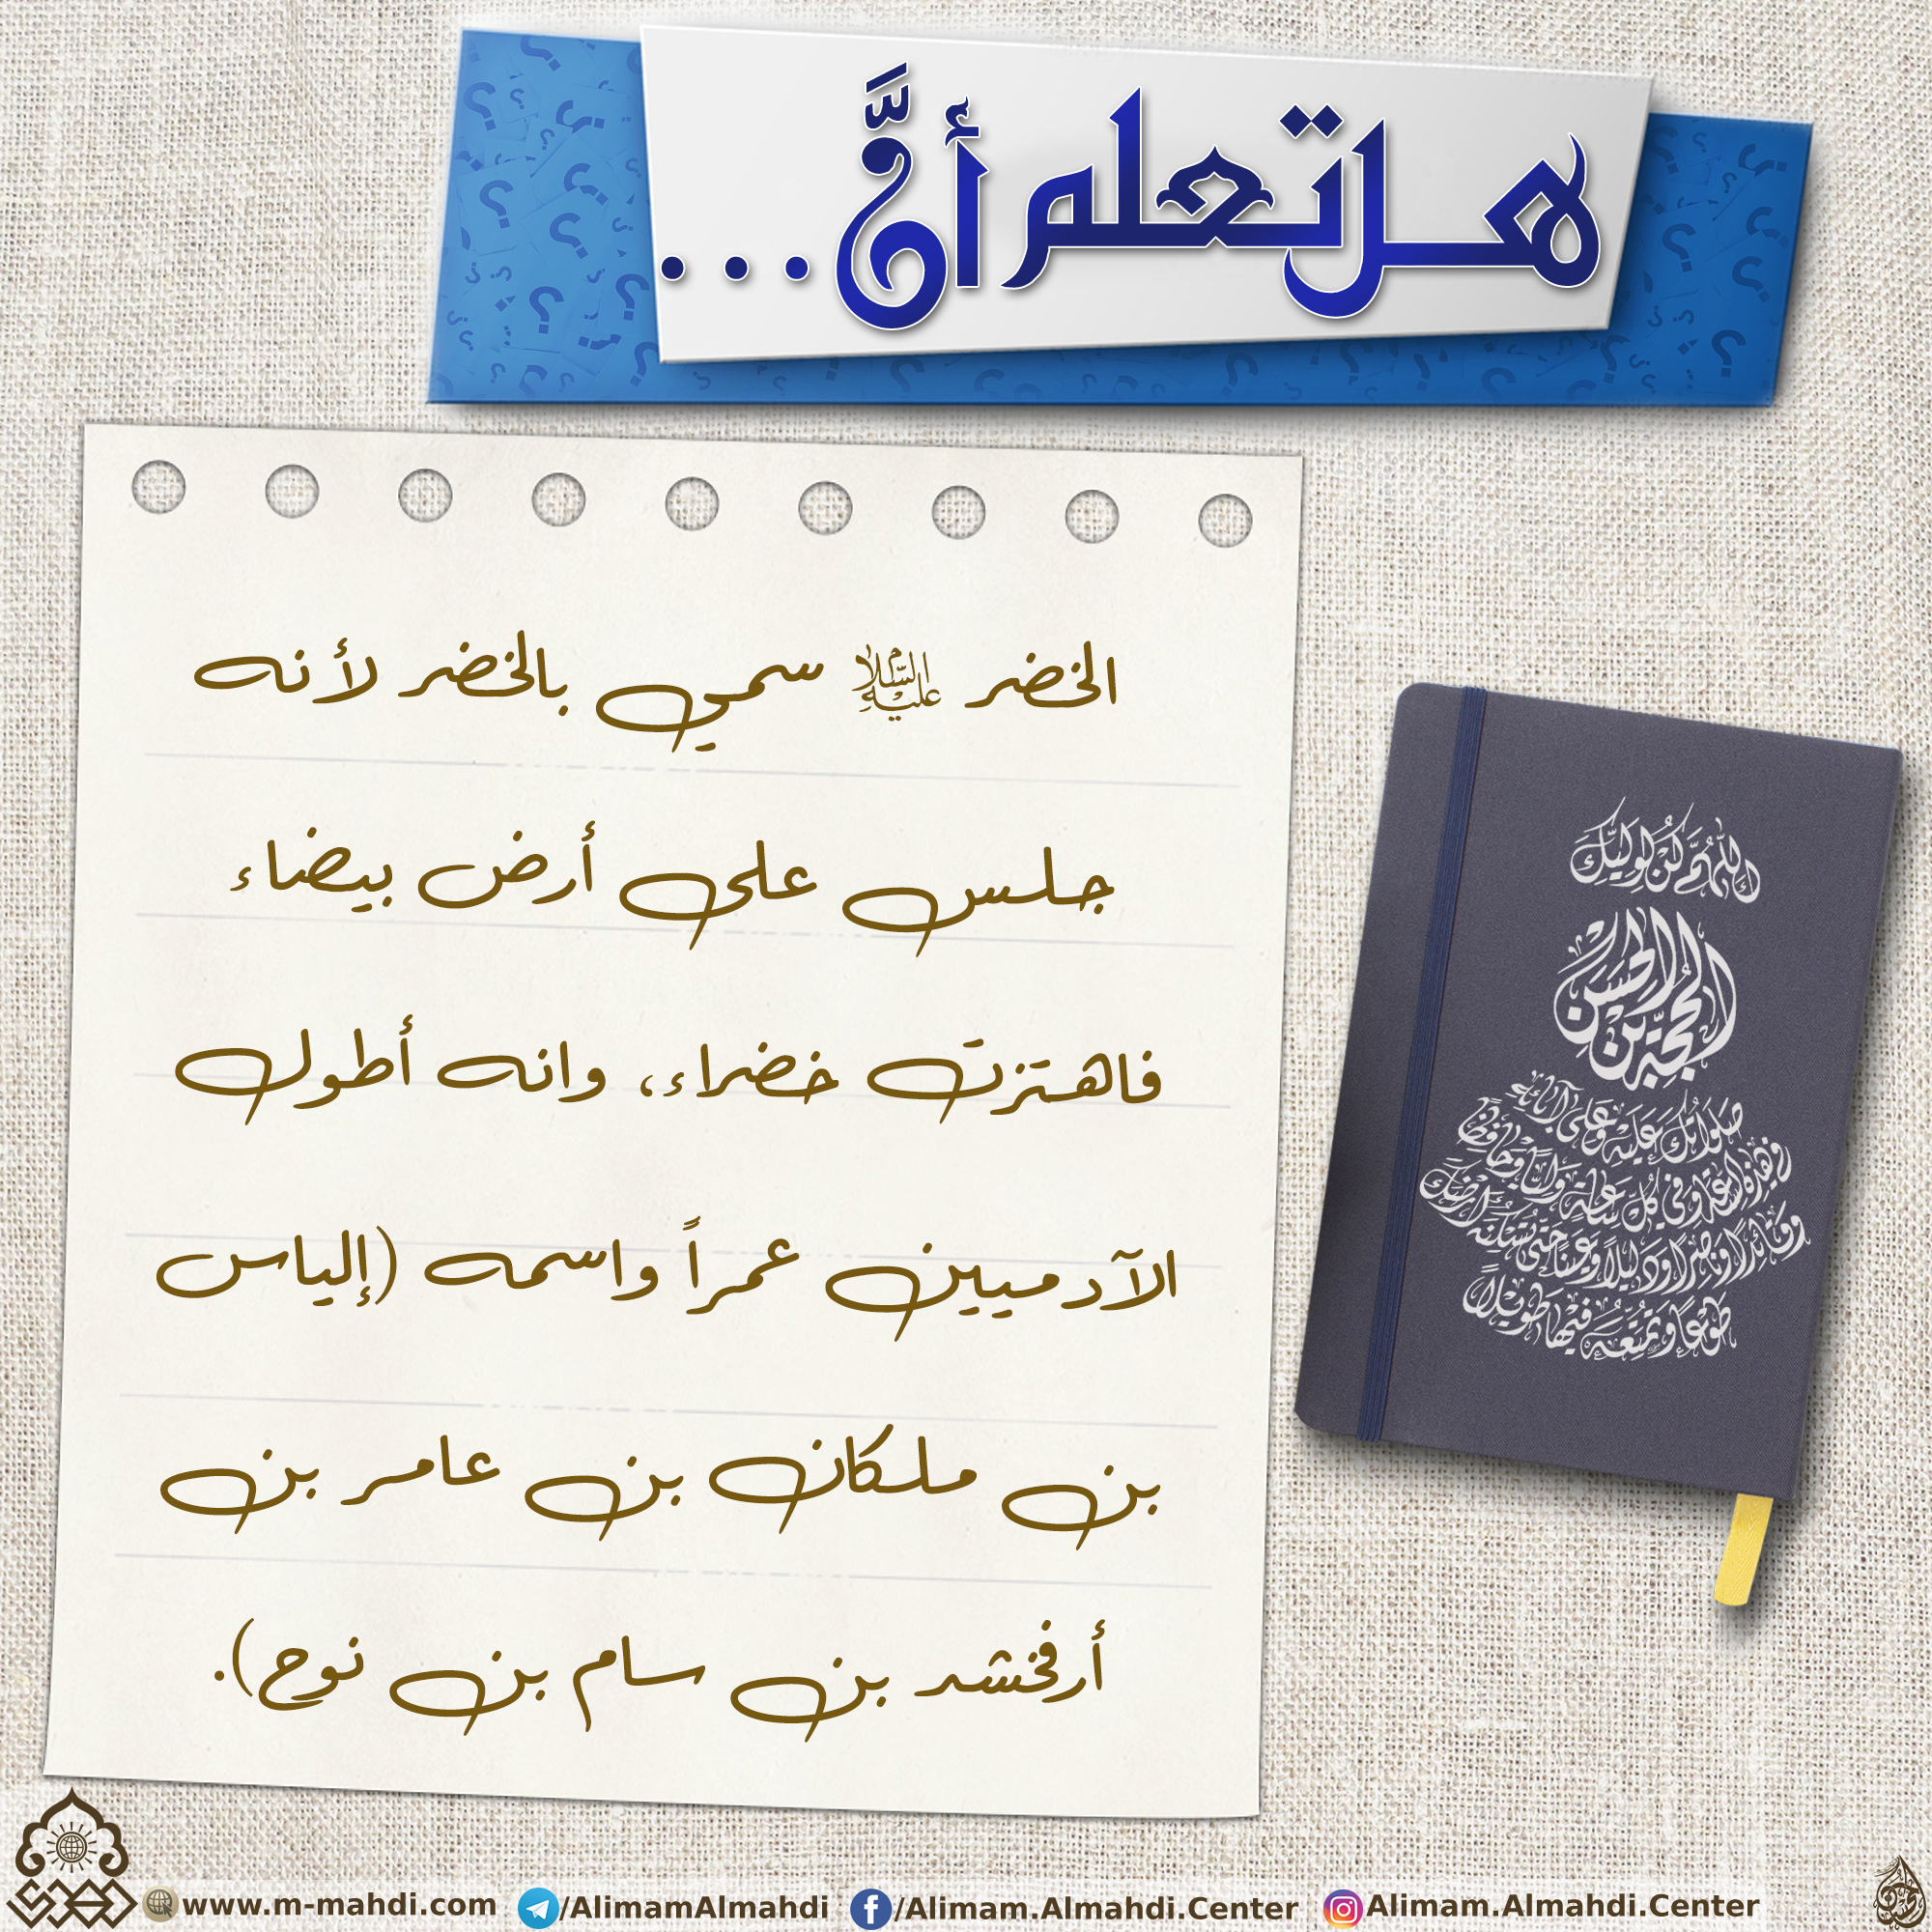 هل تعلم أنَّ...
الخضر عليه السلام سمي بالخضر لأنه
جلس على أرض بيضاء
فاهتزت خضراء، وانه أطول
الآدميين عمراً واسمه (إلياس
بن ملكان بن عامر بن
أرفخشد بن سام بن نوح).
اللهم كن لوليك
الحجة بن الحسن
صلواتك عليه وعلى آبائه
في هذه الساعة وفي كل ساعة وليا وحافظا
وقائدا وناصرا ودليلا وعينا حتى تسكنه أرضك
طوعا وتمتعه فيها طويلا
www.m-mahdi.com /AlimamAlmahdi /Alimam.Almahdi.Center Alimam.Almahdi.Center